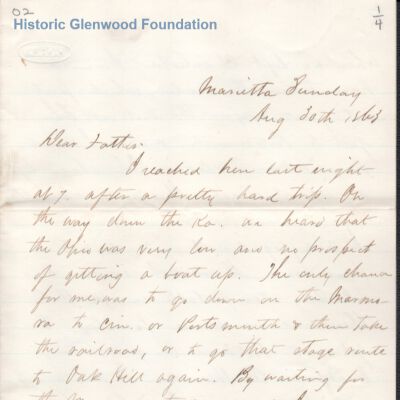 02
Historic Glenwood Foundation
1/4
Marietta Sunday
Aug 30th, 1863
Dear Father:
I reached here last night
at 7. after a pretty hard trip. On
the way down the Ka. we heard that
the Ohio was very low and no prospect
of getting a boat up. The only chance
for me, was to go down on the Marmo-
ra to Cin. or Portsmouth & then take
the railroad, or to go that stage route
to Oak Hill again. By waiting for
the